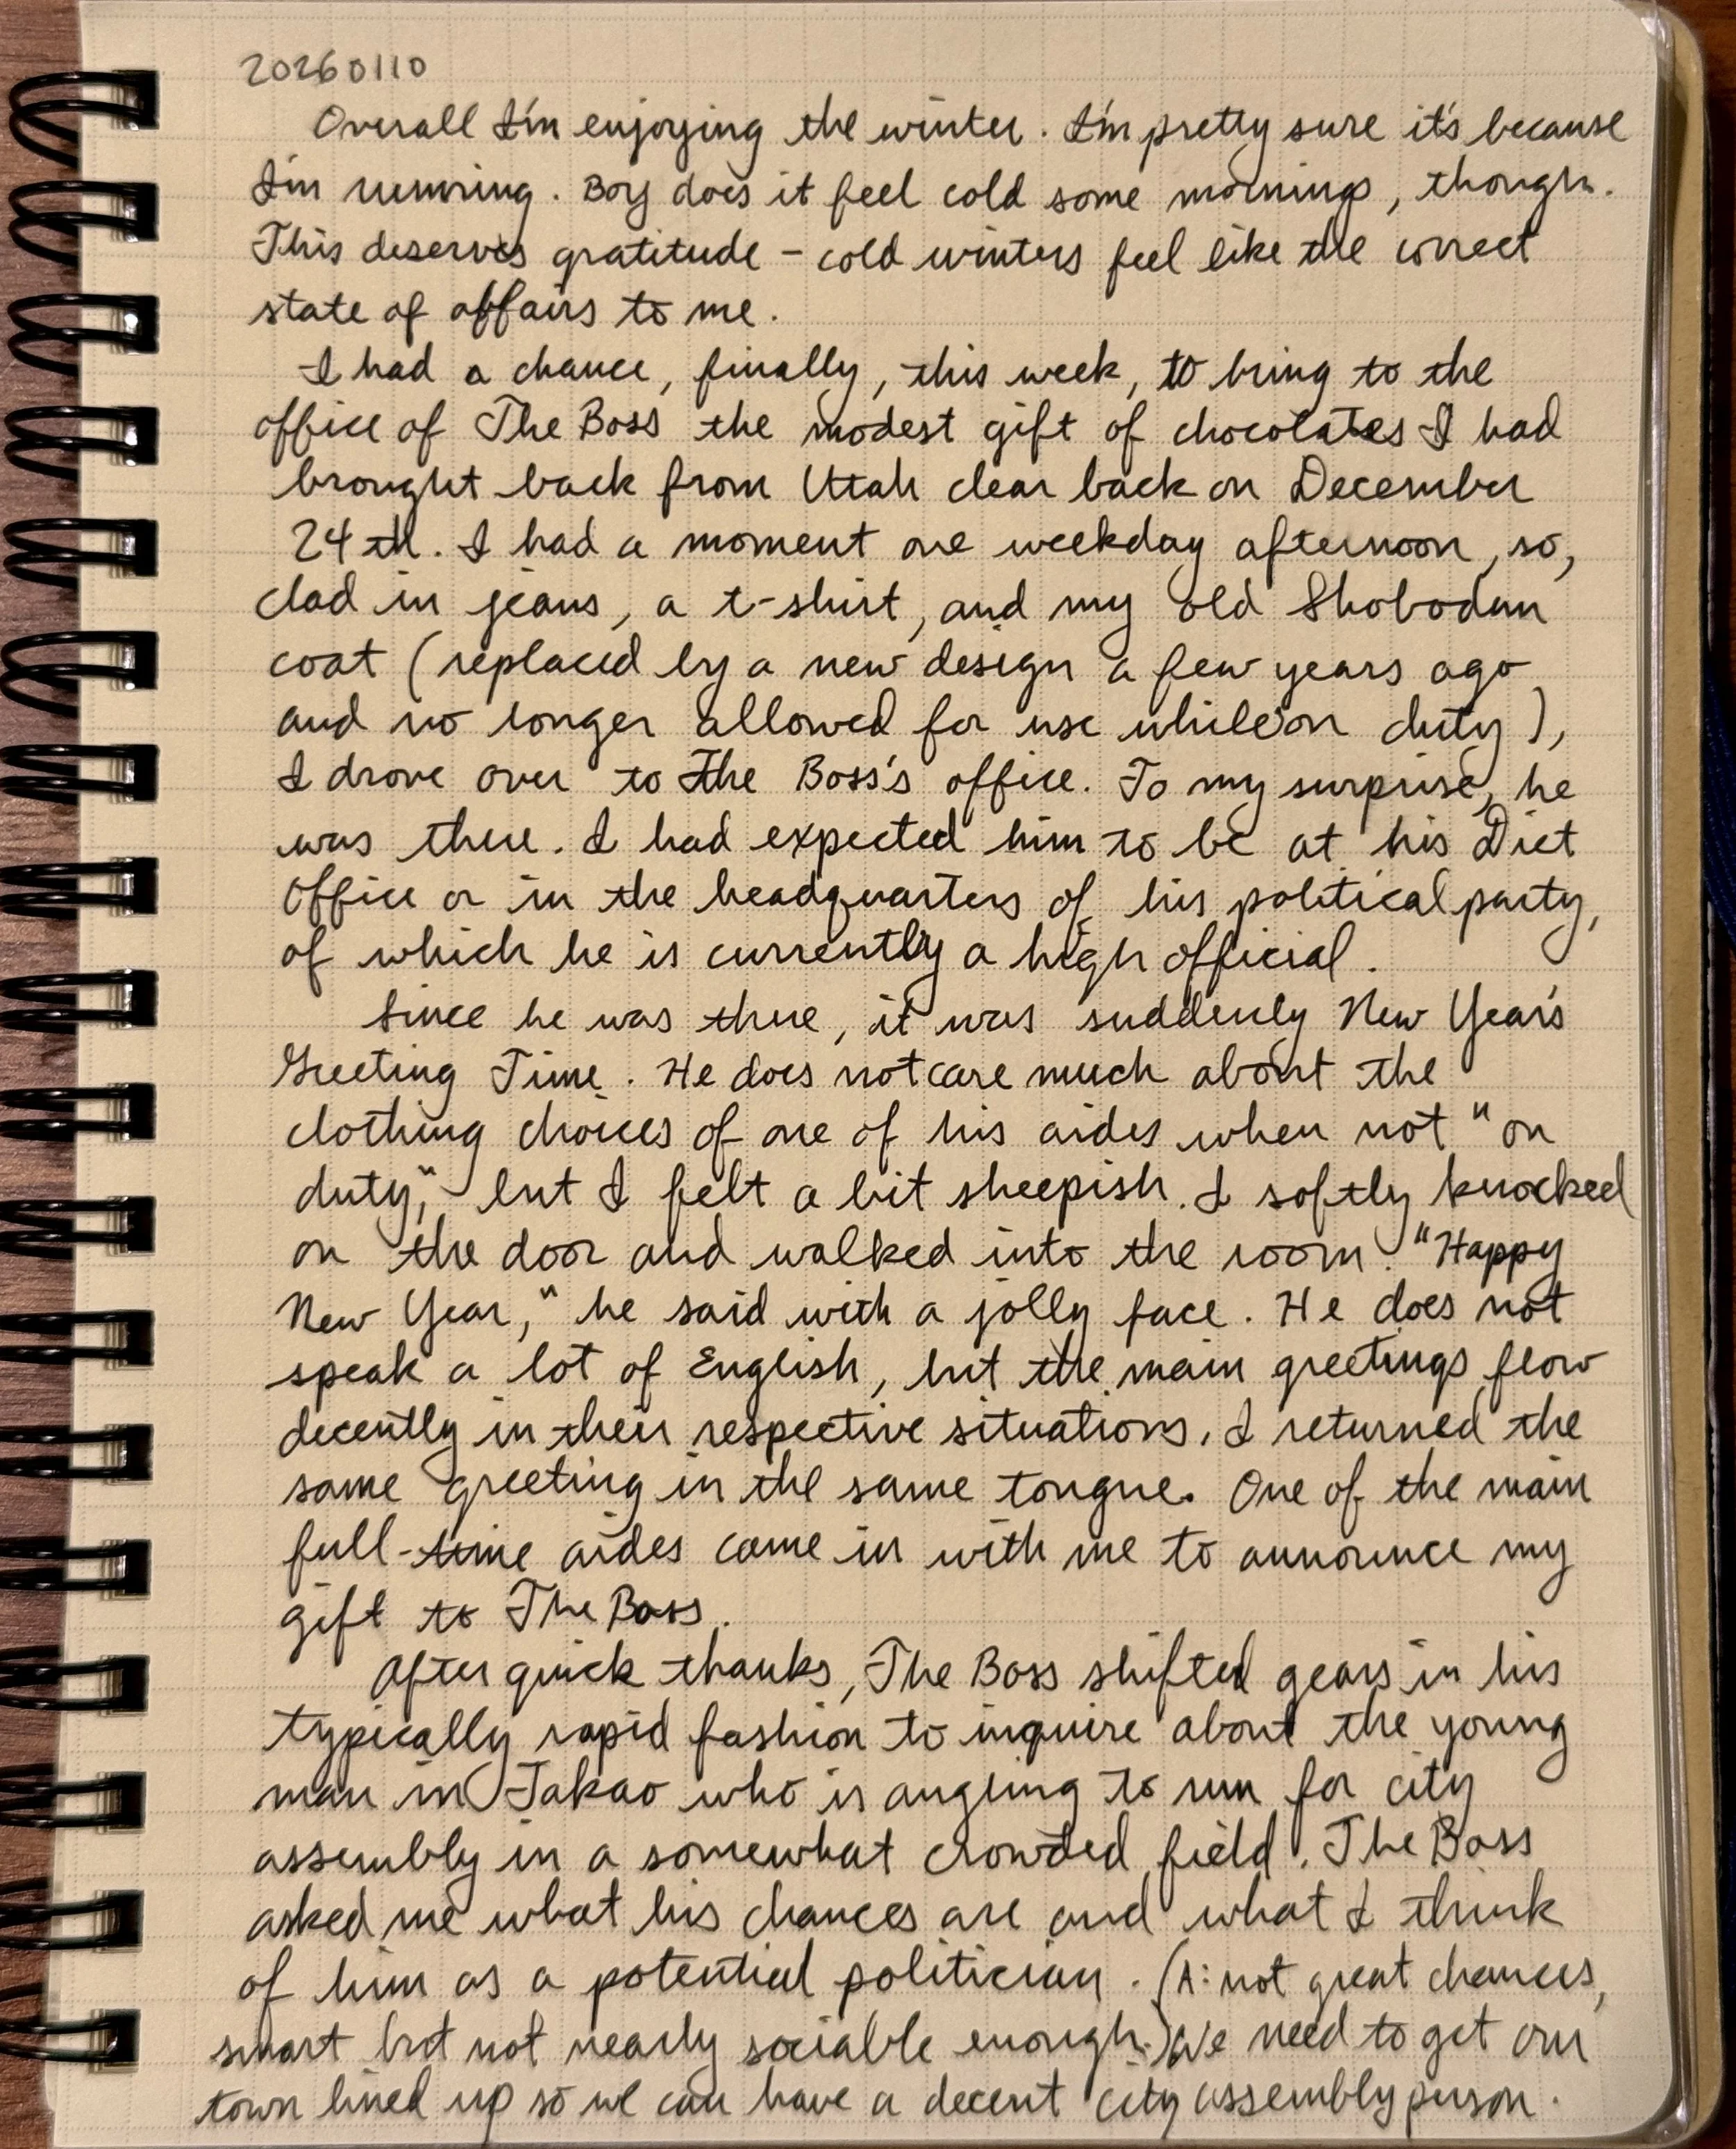 20260110
Overall I'm enjoying the winter. I'm pretty sure it's because
I'm running. Boy does it feel cold some mornings, though.
This deserves gratitude – cold winters feel like the correct
state of affairs to me.
I had a chance, finally, this week, to bring to the
office of The Boss the modest gift of chocolates I had
brought back from Utah clear back on December
24th. I had a moment one weekday afternoon, so,
clad in jeans, a t-shirt, and my old Shobodan
coat (replaced by a new design a few years ago
and no longer allowed for use while on duty),
I drove over to The Boss's office. To my surprise, he
was there. I had expected him to be at his Diet
Office or in the headquarters of his political party,
of which he is currently a high official.
Since he was there, it was suddenly New Year's
Greeting Time. He does not care much about the
clothing choices of one of his aides when not "on
duty," but I felt a bit sheepish. I softly knocked
on the door and walked into the room. "Happy
New Year," he said with a jolly face. He does not
speak a lot of English, but the main greetings flow
decently in their respective situations. I returned the
same greeting in the same tongue. One of the main
full-time aides came in with me to announce my
gift to The Boss.
After quick thanks, The Boss shifted gears in his
typically rapid fashion to inquire about the young
man in Takao who is angling to run for city
assembly in a somewhat crowded field. The Boss
asked me what his chances are and what I think
of him as a potential politician. (A: not great chances,
smart but not nearly sociable enough.) We need to get our
town lined up so we can have a decent city assemblyperson.